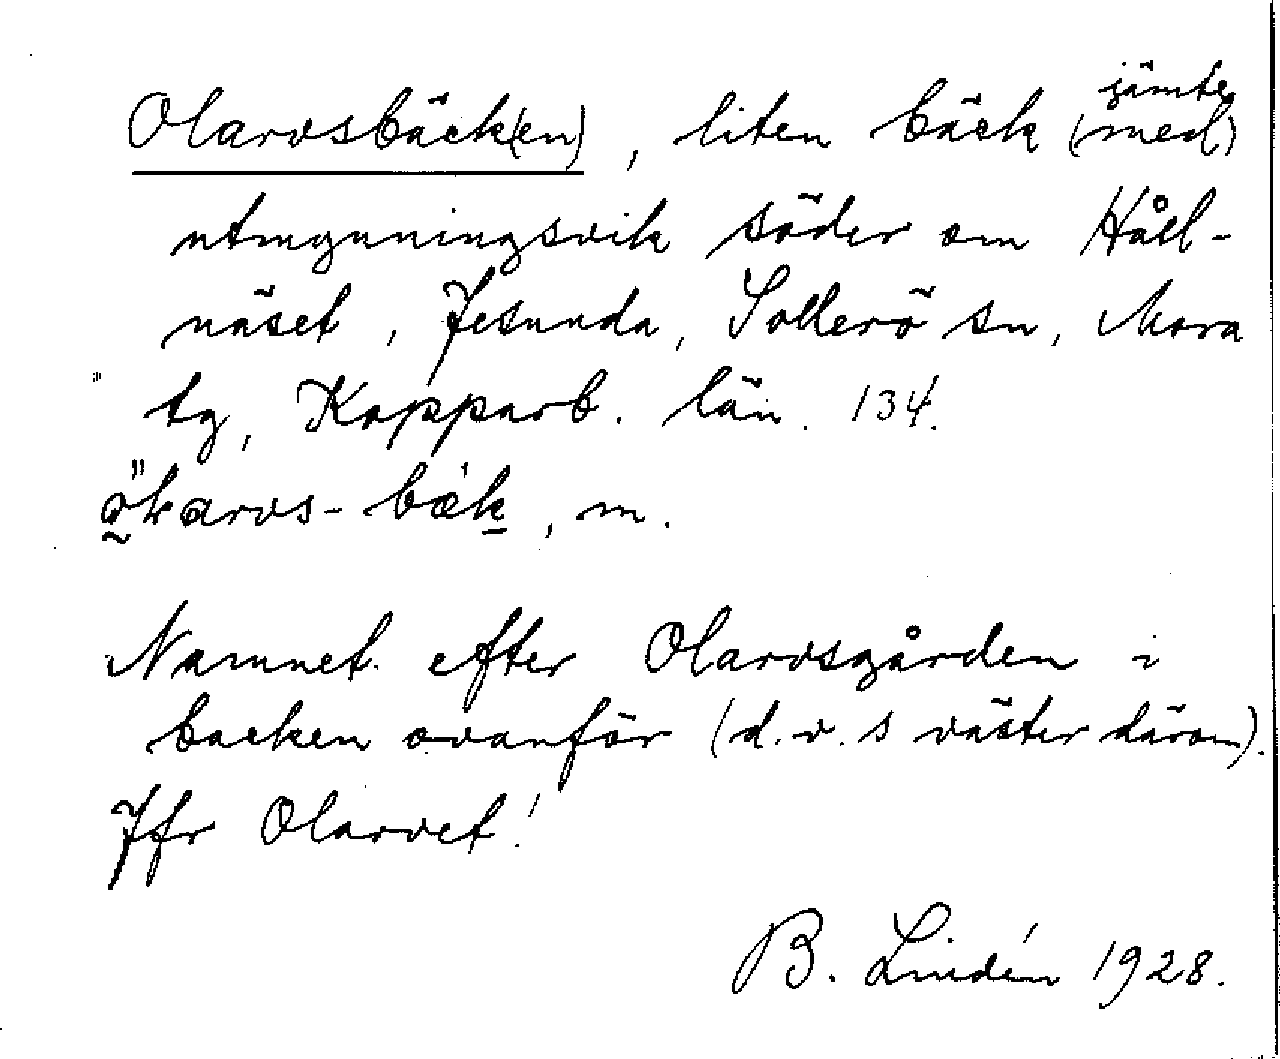 Olarvsbäck(en), liten bäck (med) jämte
utmynningsvik söder om Håll-
näset, Gesunda, Sollerö sn, Mora
tg, Kopparb. län. 134.
bäk, m.
Namnet efter Olarvsgården i
backen ovanför (d.v.s väster därom).
Jfr Olarvet!
B. Lindén 1928.